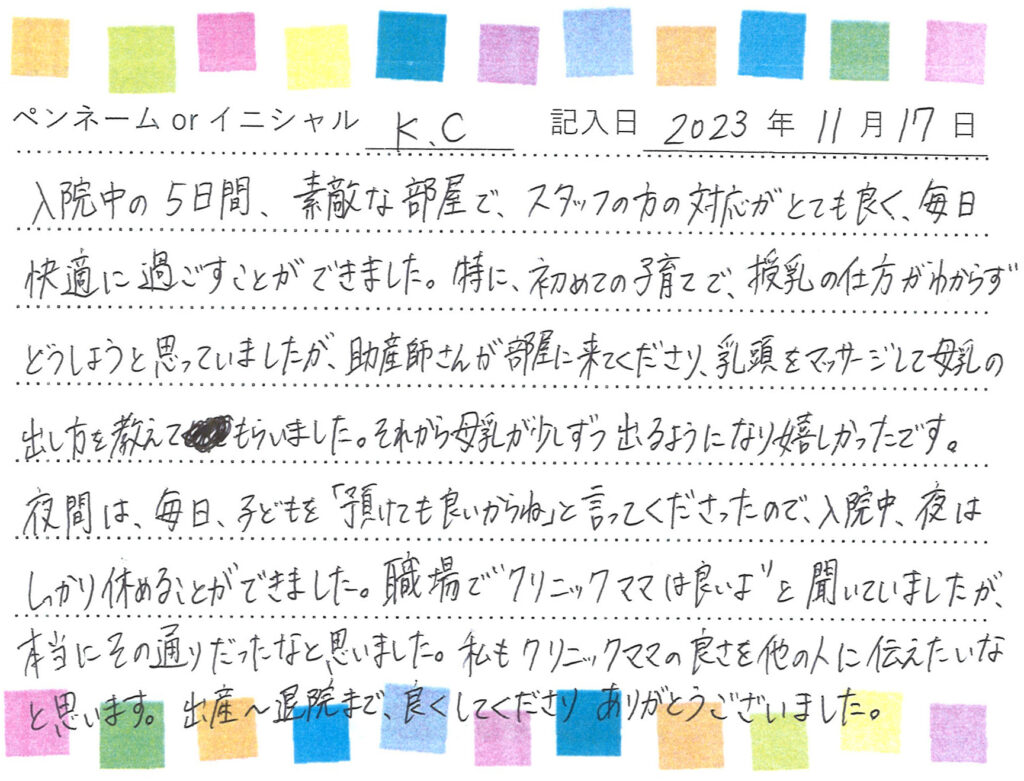 ペンネーム or イニシャル K.C 記入日 2023 年 11 月 17 日
入院中の5日間、素敵な部屋で、スタッフの方の対応がとても良く、毎日
快適に過ごすことができました。特に、初めての子育てで、授乳の仕方がわからず
どうしようと思っていましたが、助産師さんが部屋に来てくださり、乳頭をマッサージして母乳の
出し方を教えてもらいました。それから母乳が少しずつ出るようになり嬉しかったです。
夜間は、毎日、子どもを「預けても良いからね」と言ってくださったので、入院中、夜は
しっかり休めることができました。職場で"クリニックママは良いよ"と聞いていましたが、
本当にその通りだったなと思いました。私もクリニックママの良さを他の人に伝えたいな
と思います。出産～退院まで、良くしてくださりありがとうございました。